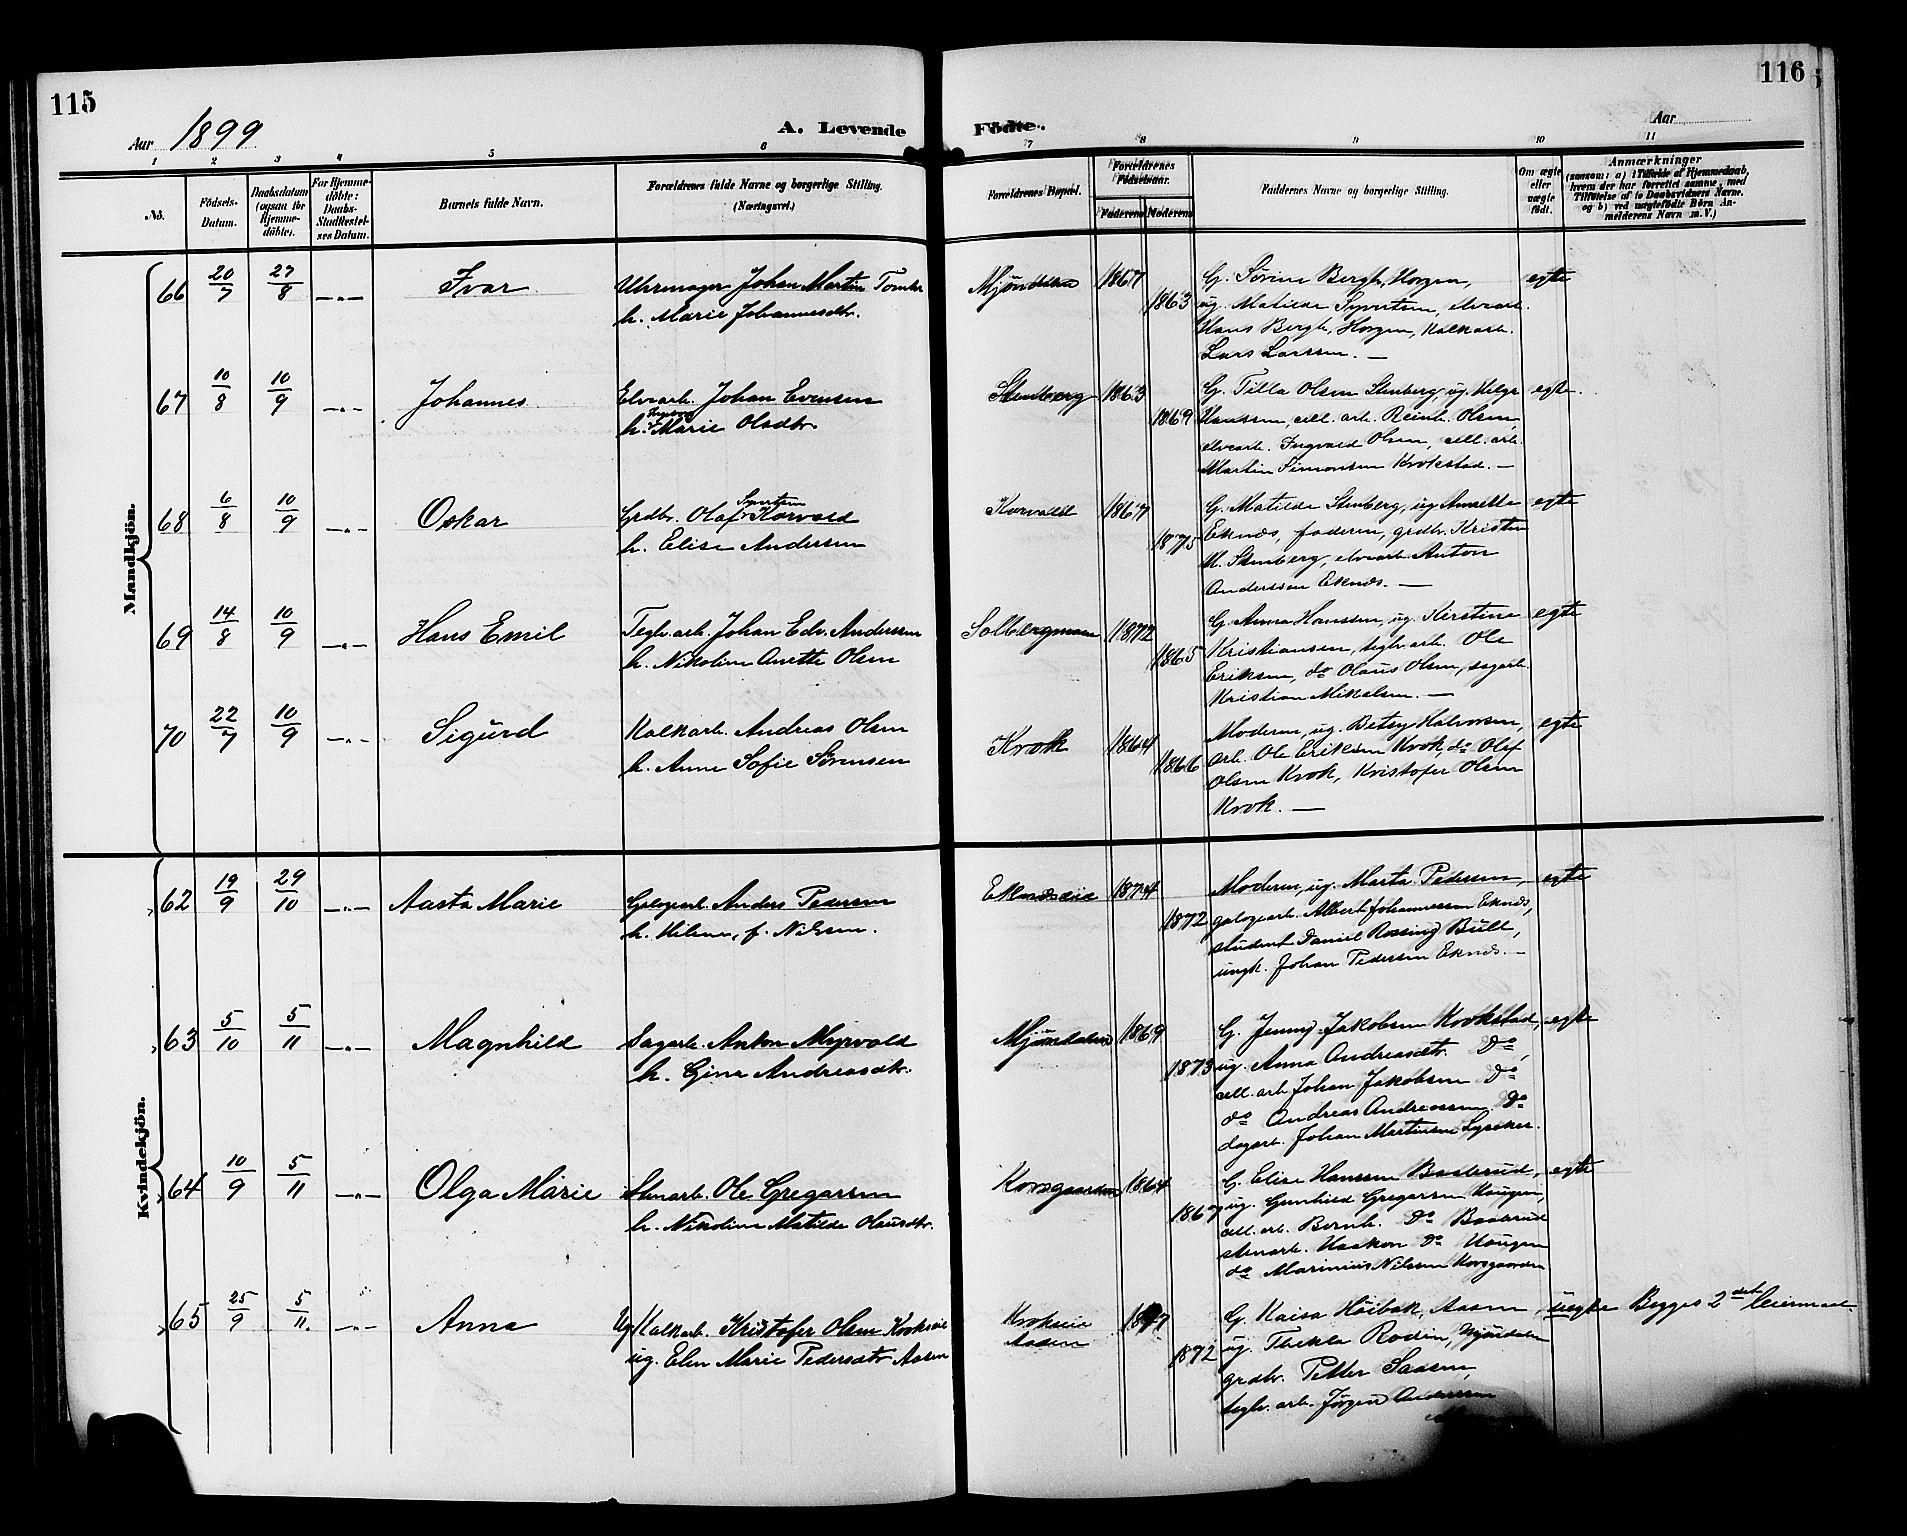 115
116
Aar 1899
A. Levende
Födte.
Aar
1 2 3 4 5 6 7 8 9 10 11
No.
Födsels-Datum.
Daabsdatum (ogsaa for Hjemme-döbte).
For Hjemme-döbte: Daabs-Stadfæstel-ses Datum.
Barnets fulde Navn.
Forældrenes fulde Navne og borgerlige Stilling. (Næringsvei.)
Forældrenes Bopæl.
Forældrenes Födselsaar.
Faderens Moderens
Faddernes Navne og borgerlige Stilling.
Om ægte eller uægte födt.
Anmærkninger
(saasom: a) i Tilfælde af Hjemmedaab, hvem der har forrettet samme, med Tilföielse af to Daabsvidners Navne, og b) ved uægtefödte Börn An-melderens Navn m. V.)
Mandkjön.
66 20/7 27/8 —„— Ivar
Uhrmager Johan Martin
h. Marie Johannesdtr.
Mjöndalen 1867 1863
G. Sörine Bergh, Horgen,
ug. Matilde Syvertsen, elvearb.
Hans Bergh, Horgen, Kalkarb.
Lars Larssen. —
egte
67 10/8 10/9 —„— Johannes
Elvearb. Johan Evensen
h. Marie Olsdtr.
Stenberg 1863 1869
G. Tilla Olsen Stenberg, ug. Helga
Hanssen, cell. arb. Reinh. Olsen,
elvearb. Ingvald Olsen, cell. arb.
Martin Simonsen Krokstad. —
egte.
68 6/8 10/9 —„— Oskar
Syvertsen
Grdbr. Olaf Korvald
h. Elise Andersen
Korvald 1867 1875
G. Matilde Stenberg, ug. Annette
Eknæs, faderen, grdbr. Kristen
M. Stenberg, elvearb. Anton
Anderssen Eknæs. —
egte
69 14/8 10/9 —„— Hans Emil
Teglv.arb. Johan Edv. Anderssen
h. Nikoline Anette Olsen
Solbergmoen 1872 1865
G. Anna Hanssen, ug. Kirstine
Kristiansen, teglv. arb. Ole
Eriksen, do Olaus Olsen, sagarb.
Kristian Mikalsen. —
egte
70 22/7 10/9 —„— Sigurd
Kalkarb. Andreas Olsen
h. Anne Sofie Sörensen
Krok 1864 1866
Moderen, ug. Betsy Halvorsen,
arb. Ole Eriksen Krok, do Olaf
Olsen Krok, Kristofer Olsen
Krok. —
egte
Kvindekjön.
62 19/9 29/10 —„— Aasta Marie
Anders Pedersen
h. Helene, f. Nilsen.
Eknæseie 1874 1872
Moderen, ug. Marta Pedersen,
Albert Johannessen Eknæs,
student Daniel Rossing Bull,
ungk. Johan Pedersen Eknæs. —
egte
63 5/10 5/11 —„— Magnhild
Sagarb. Anton Myrvold
h. Gina Andreasdtr.
Mjöndalen 1869 1873
G. Jenny Jakobsen Krokstad,
ug. Anna Andreasdtr. Do,
cell. arb. Johan Jakobsen Do
do Andreas Andreassen Do
dagarb. Johan Martinsen Lysaker.
egte
64 10/9 5/11 —„— Olga Marie
Stenarb. Ole Gregarsen
h. Nikoline Matilde Olausdtr.
Korsgaarden 1864 1867
G. Elise Hanssen Basterud,
ug. Gunhild Gregarsen Haugen,
cell. arb. Bernh. Do Basterud
stenarb. Haakon Do Haugen
do Marinius Nilssen Korsgaarden
egte
65 25/9 5/11. —„— Anna
Ug. Kalkarb. Kristofer Olsen Krokseie
ug. Elen Marie Pedersdtr Aasen
Krokseie
Aasen
1877 1872
G. Kaisa Höibak, Aasen,
ug. Thekla Rodin, Mjöndalen
grdbr. Petter Saasen,
teglv. arb. Jörgen Anderssen
uegte Begges 2det leiermaal.